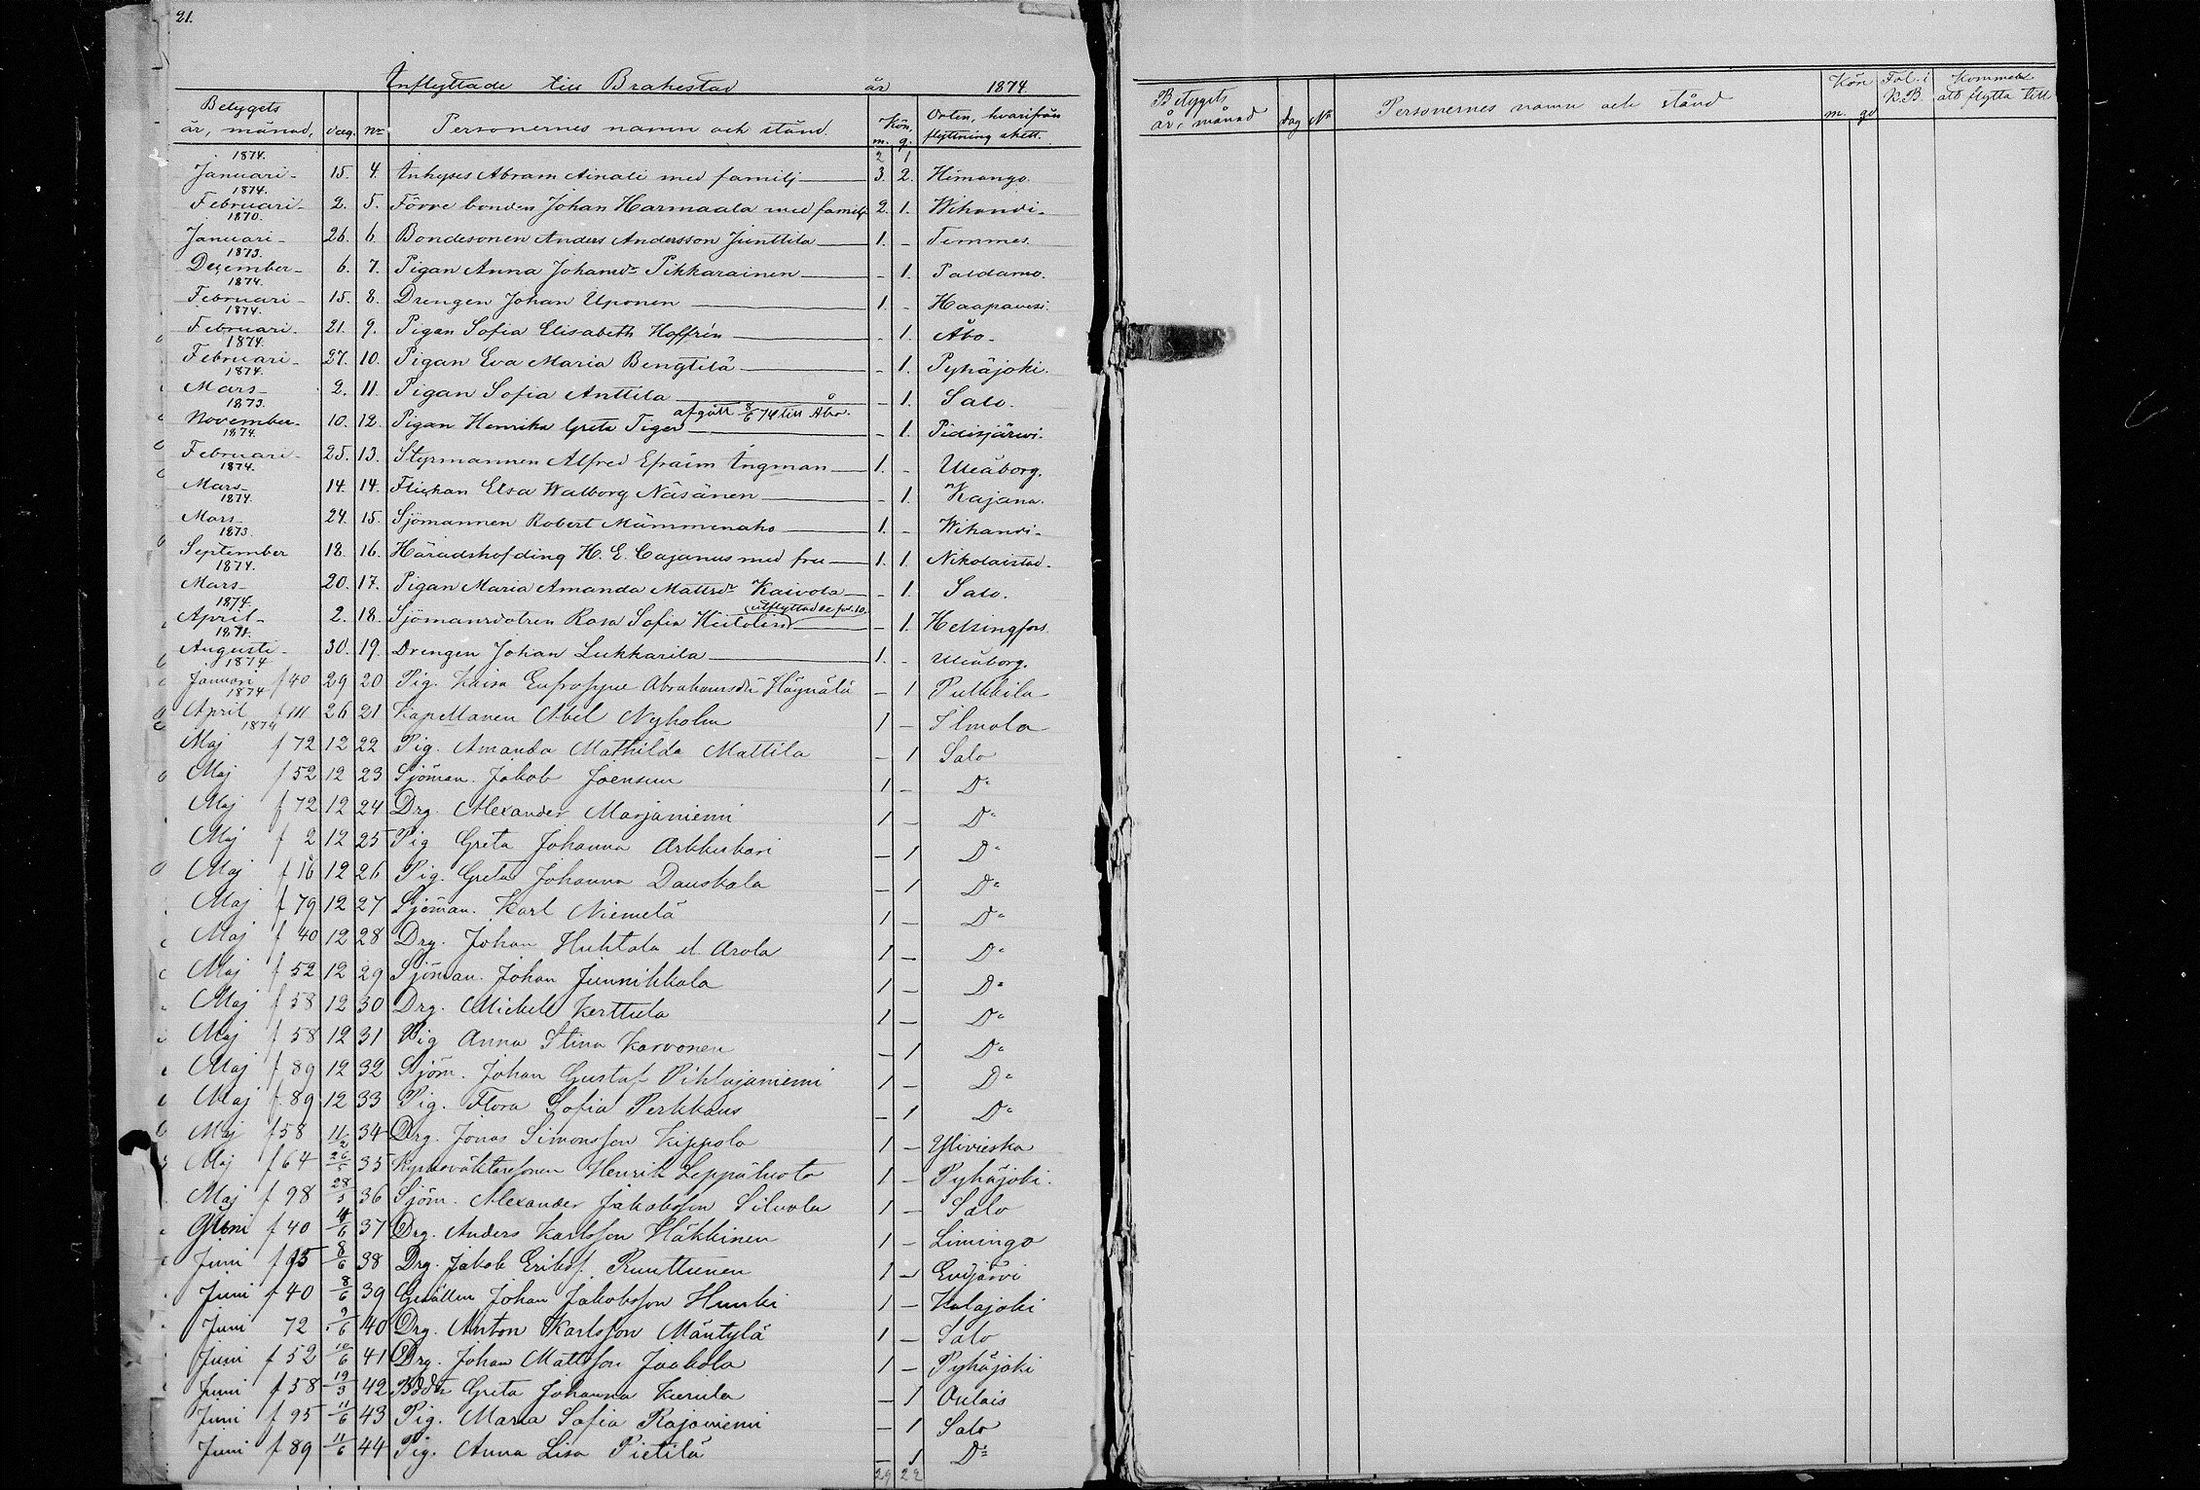 21.
Inflyttade till Brahestad år 1874.
Betygets år, månad, dag. No Personernes namn och stånd. Kön, m. q. Orten, hvarifrån flyttning skett.
2 1
1874. Januari - 15. 4. Inhyses Abram Ainali med familj 3. 2. Himango.
1874. Februari - 2. 5. Förre bonden Johan Harmaala med familj 2. 1. Wihandi -
1870. Januari - 26. 6. Bondesonen Anders Andersson Junttila 1. - Temmes.
1873. December - 6. 7. Pigan Anna Johansdr Pikkarainen - 1. Paldamo.
1874. Februari - 15. 8. Drengen Johan Uponen 1. - Haapavesi.
1874. Februari. 21. 9. Pigan Sofia Elisabeth Hoffrén - 1. Åbo -
1874. Februari - 27. 10. Pigan Eva Maria Bengtilä - 1. Pyhäjoki.
1874. Mars 2. 11. Pigan Sofia Anttila - 1. Salo.
1873. November - 10. 12. Pigan Henrika Greta Tiger afgått 8/6 74 till Åbo. - 1. Pidisjärwi.
1874. Februari - 25. 13. Styrmannen Alfred Efraim Ingman 1. - Uleåborg.
1874. Mars - 14. 14. Flickan Elsa Walborg Näsänen - 1. Kajana.
1874. Mars 24. 15. Sjömannen Robert Mämmenaho 1. - Wihandi -
1873. September 18. 16. Häradshöfding H. E. Cajanus med fru 1. 1. Nikolaistad -
1874. Mars - 20. 17. Pigan Maria Amanda Mattsdr Kaivola - 1. Salo.
1874. April - 2. 18. Sjömansdotren Rosa Sofia Hietolin (utflyttad se fol. 10.) - 1. Helsingfors
1871. Augusti - 30. 19. Drengen Johan Lukkarila 1. - Uleåborg.
1874 Januari f 40 29 20 Pig. Kaisa Eufrosyne Abrahamsdr Häynälä - 1 Pulkkila
1874 April f 111 26 21 Kapellanen Abel Nyholm 1 - Ilmola
1874 Maj f 72 12 22 Pig. Amanda Mathilda Mattila - 1 Salo
Maj f 52 12 23 Sjöman. Jakob Joensuu 1 - Do
Maj f 72 12 24 Drg. Alexander Marjaniemi 1 - Do
Maj f 2 12 25 Pig Greta Johanna Arkkukari - 1 Do
Maj f 16 12 26 Pig. Greta Johanna Dauskala - 1 Do
Maj f 79 12 27 Sjöman. Karl Niemelä 1 - Do
Maj f 40 12 28 Drg. Johan Huhtala el. Arola 1 - Do
Maj f 52 12 29 Sjöman. Johan Junnikkala 1 - Do
Maj f 58 12 30 Drg. Mickell Kerttula 1 - Do
Maj f 58 12 31 Pig Anna Stina Karvonen - 1 Do
Maj f 89 12 32 Sjöm. Johan Gustaf Pihlajaniemi 1 - Do
Maj f 89 12 33 Pig. Flora Sofia Perkkaus - 1 Do
Maj f 58 11/2 34 Drg. Jonas Simonsson Kippola 1 - Ylivieska
Maj f 64 26/5 35 Kyrkoväktaresonen Henrik Leppäluoto 1 - Pyhäjoki.
Maj f 98 28/5 36 Sjöm. Alexander Jakobsson Siluola 1 - Salo
Juni f 40 4/6 37 Drg. Anders Karlsson Häkkinen 1 - Limingo
Juni f 95 8/6 38 Drg. Jakob Eriksf. Ruuttunen 1 - Evijärvi
Juni f 40 8/6 39 Gesällen Johan Jakobsson Huuki 1 - Kalajoki
Juni 72 9/6 40 Drg. Anton Karlsson Mäntylä 1 - Salo
Juni f 52 10/6 41 Drg. Johan Mattsson Jaakola 1 - Pyhäjoki
Juni f 58 19/3 42 Bdotr Greta Johanna Kurula - 1 Oulais
Juni f 95 11/6 43 Pig. Maria Sofia Rajaniemi - 1 Salo
Juni f 89 11/6 44 Pig. Anna Lisa Pietilä - 1 Do
29 22
Betygets år, månad dag No Personernes namn och stånd Kön m. qv Fol. i K.B. Kommebr att flytta till